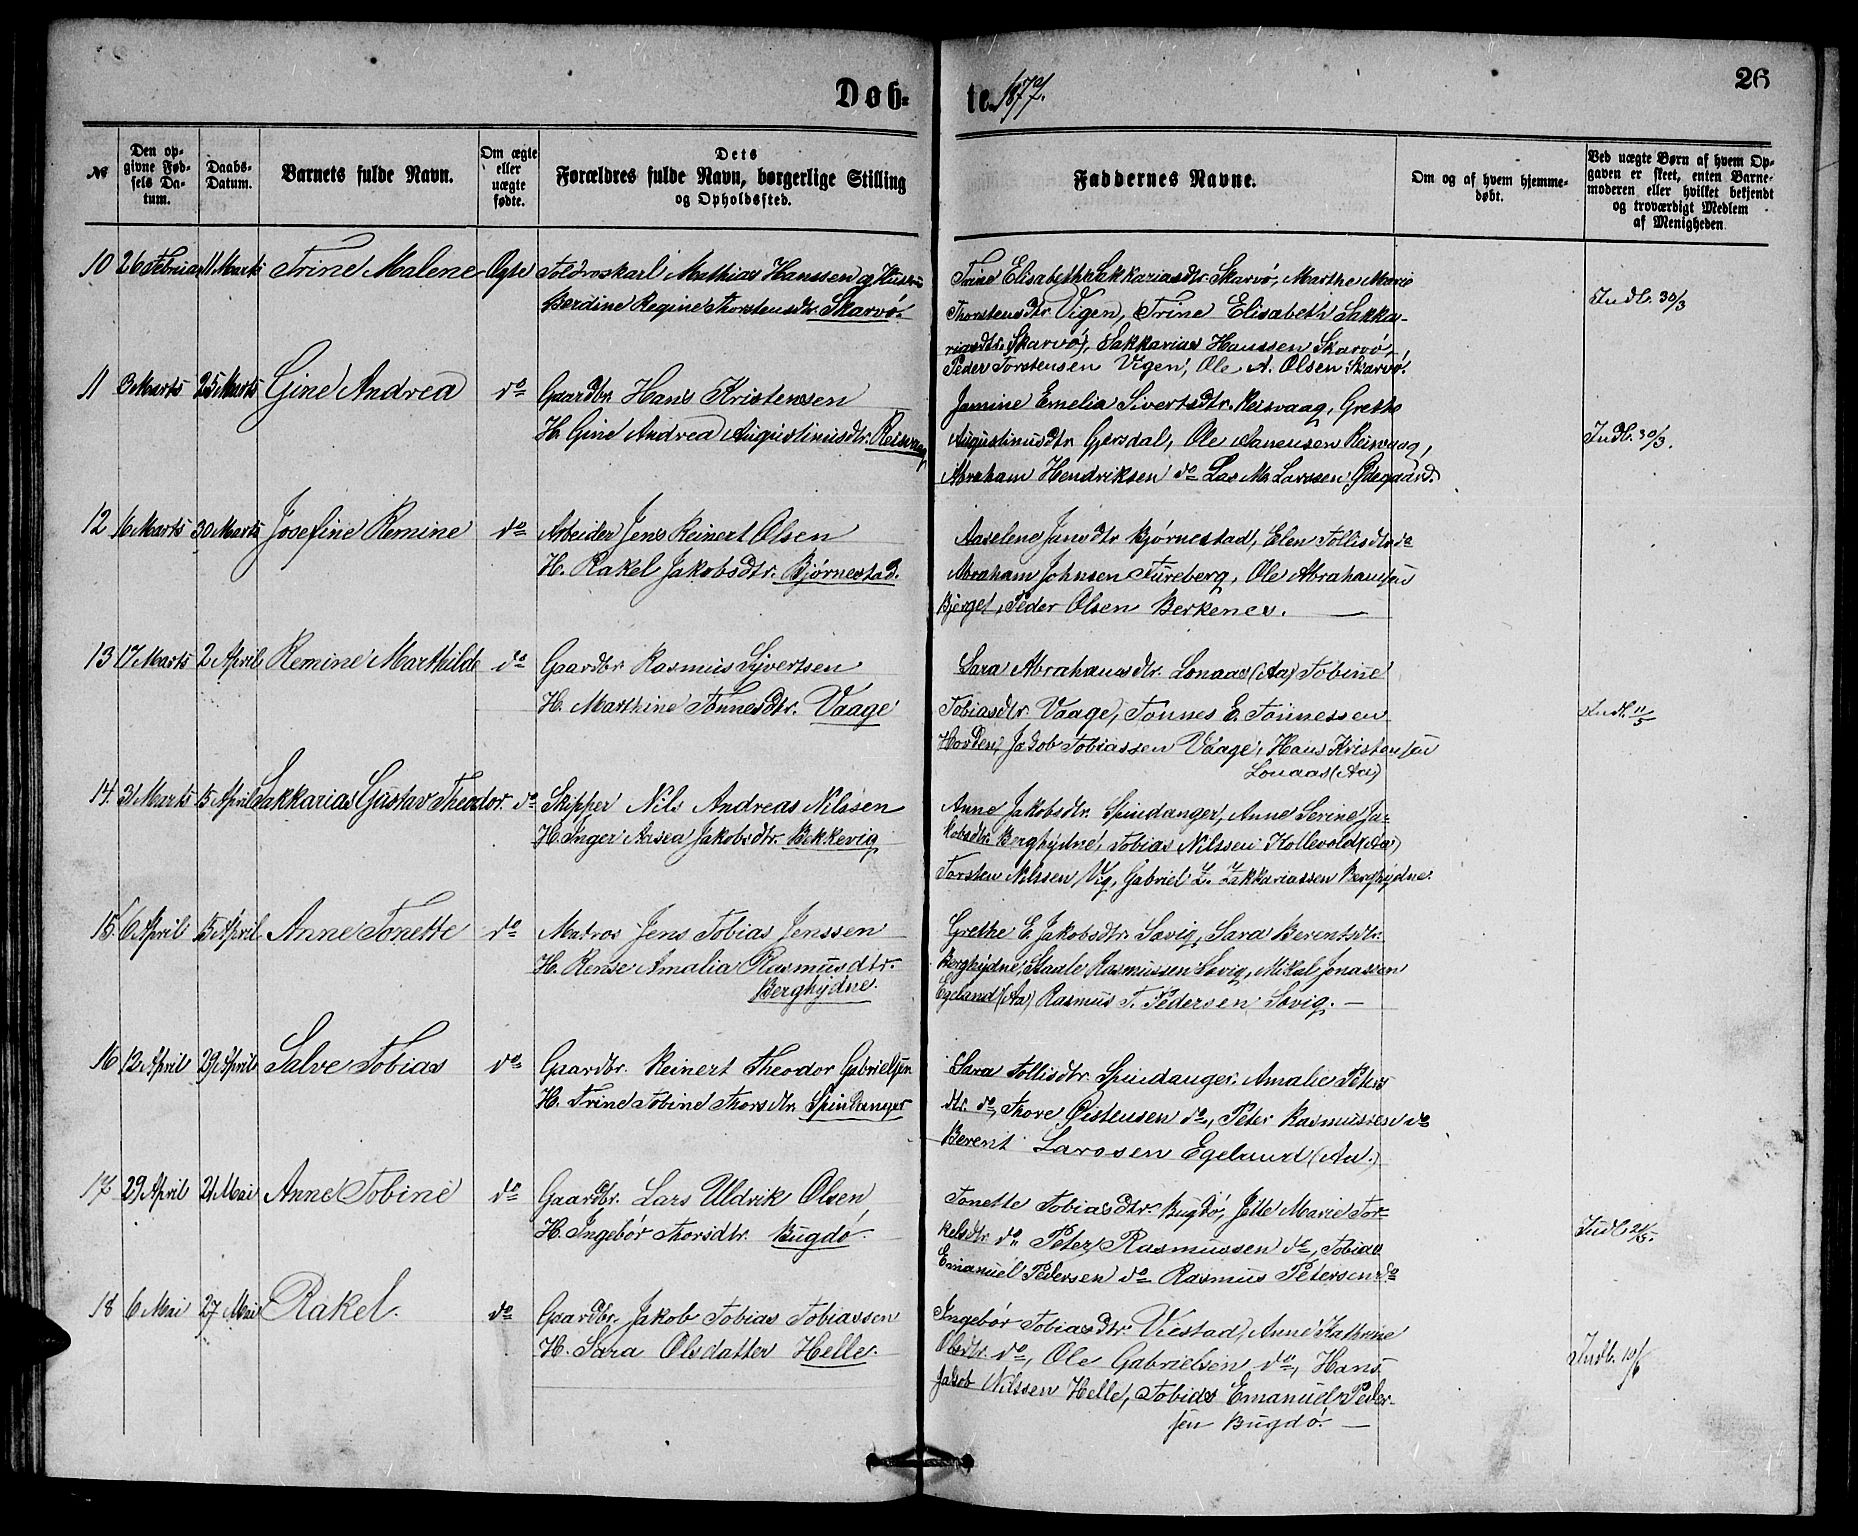 Døb-
te. 1877.
26
No
Den op-
givne Fød-
sels Da-
tum.
Daabs-
Datum.
Barnets fulde Navn.
Om ægte
eller
uægte
fødte.
Dets
Forældres fulde Navn, borgerlige Stilling
og Opholdssted.
Faddernes Navne.
Om og af hvem hjemme-
døbt.
Ved uægte Børn af hvem Op-
gaven er skeet, enten Barne-
moderen eller hvilket bekjendt
og troværdigt Medlem
af Menigheden.
10 26 Februar 11 Marts Trine Malene Ægte Toldroskarl Mathias Hanssen og Hustru
Berdine Regine Thorstensdtr. Skarvø.
Trine Elisabeth Sakkariasdtr. Skarvø, Marthe Marie
Thorstensdtr. Vigen, Trine Elisabeth Sakka-
riasdtr. Skarvø, Sakkarias Hanssen Skarvø,
Peder Torstensen Vigen, Ole A. Olsen Skarvø.
Indb. 30/3
11 3 Marts 25 Marts Gine Andrea do Gaardbr. Hans Kristensen
H. Gine Andrea Augustinusdtr. Reisvaag
Jamine Emelia Sivertsdtr. Reisvaag, Grethe
Augustinusdtr. Gjersdal, Ole Reisvaag,
Abraham Hendriksen do Las M. Larssen Ødegaard.
Indb. 30/3.
12 6 Marts 30 Marts Josefine Remine do Arbeider Jens Reinert Olsen
H. Rakel Jakobsdtr. Bjørnestad.
Aaselene Jansdtr. Bjørnestad, Elen Tollisdtr. do
Abraham Johnsen Fureberg, Ole Abrahamsen
Bjerget, Peder Olsen Berkenes.
13 17 Marts 2 April Remine Marthilde do Gaardbr. Rasmus Syvertsen
H. Marthine Tønnesdtr. Vaage
Sara Abrahamsdtr. Lonaas (Aa) Tobine
Tobiasdtr. Vaage, Tønnes E. Tønnessen
Hovden, Jakob Tobiassen Vaage, Hans Kristensen
Lonaas (Aa)
Indb. 11/5
14. 31 Marts 15 April Sakkarias Gustav Theodor. do Skipper Nils Andreas Nilssen
H. Inger Aasea Jakobsdtr. Bekkevig
Anne Jakobsdtr. Spindanger, Anne Serine Ja-
kobsdtr. Berghydne, Tobias Nilssen Kollevold (Aa)
Torsten Nilssen Vig, Gabriel Z. Zakkariassen Berghydne.
15. 6 April 15 April Anne Tonette do Matros Jens Tobias Jenssen
H. Rense Amalia Rasmusdtr.
Berghydne.
Grethe E. Jakobsdtr. Søvig, Sara Berentsdtr.
Berghydne, Staale Rasmussen Søvig, Mikal Jonassen
Egeland (Aa) Rasmus T. Pedersen Søvig.
16 12 April 29 April Salve Tobias do Gaardbr. Reinert Theodor Gabrielsen
H. Trine Tobine Thorsdtr. Spindanger
Sara Tollisdtr. Spindanger, Amalie Peters
dtr. do, Thore Øistensen do, Peter Rasmussen do
Berent Larssen Egeland (Aa.)
17 29 April 21 Mai Anne Tobine do Gaardbr. Lars Uldrik Olsen
H. Ingebør Thorsdtr. Bugdø.
Tonette Tobiasdtr. Bugdø, Jette Marie Tor-
kelsdtr. do Peter Rasmussen do, Tobias
Emanuel Pedersen do Rasmus Petersen do
Indb. 21/5.
18 6 Mai 27 Mai Rakel. do Gaardbr. Jakob Tobias Tobiassen
H. Sara Olsdatter Helle.
Ingebør Tobiasdtr. Viestad, Anne Kathrine
Olsdtr. do, Ole Gabrielsen do, Hans
Jakob Nilssen Helle, Tobias Emanuel Peder-
sen Bugdø.
Indb.